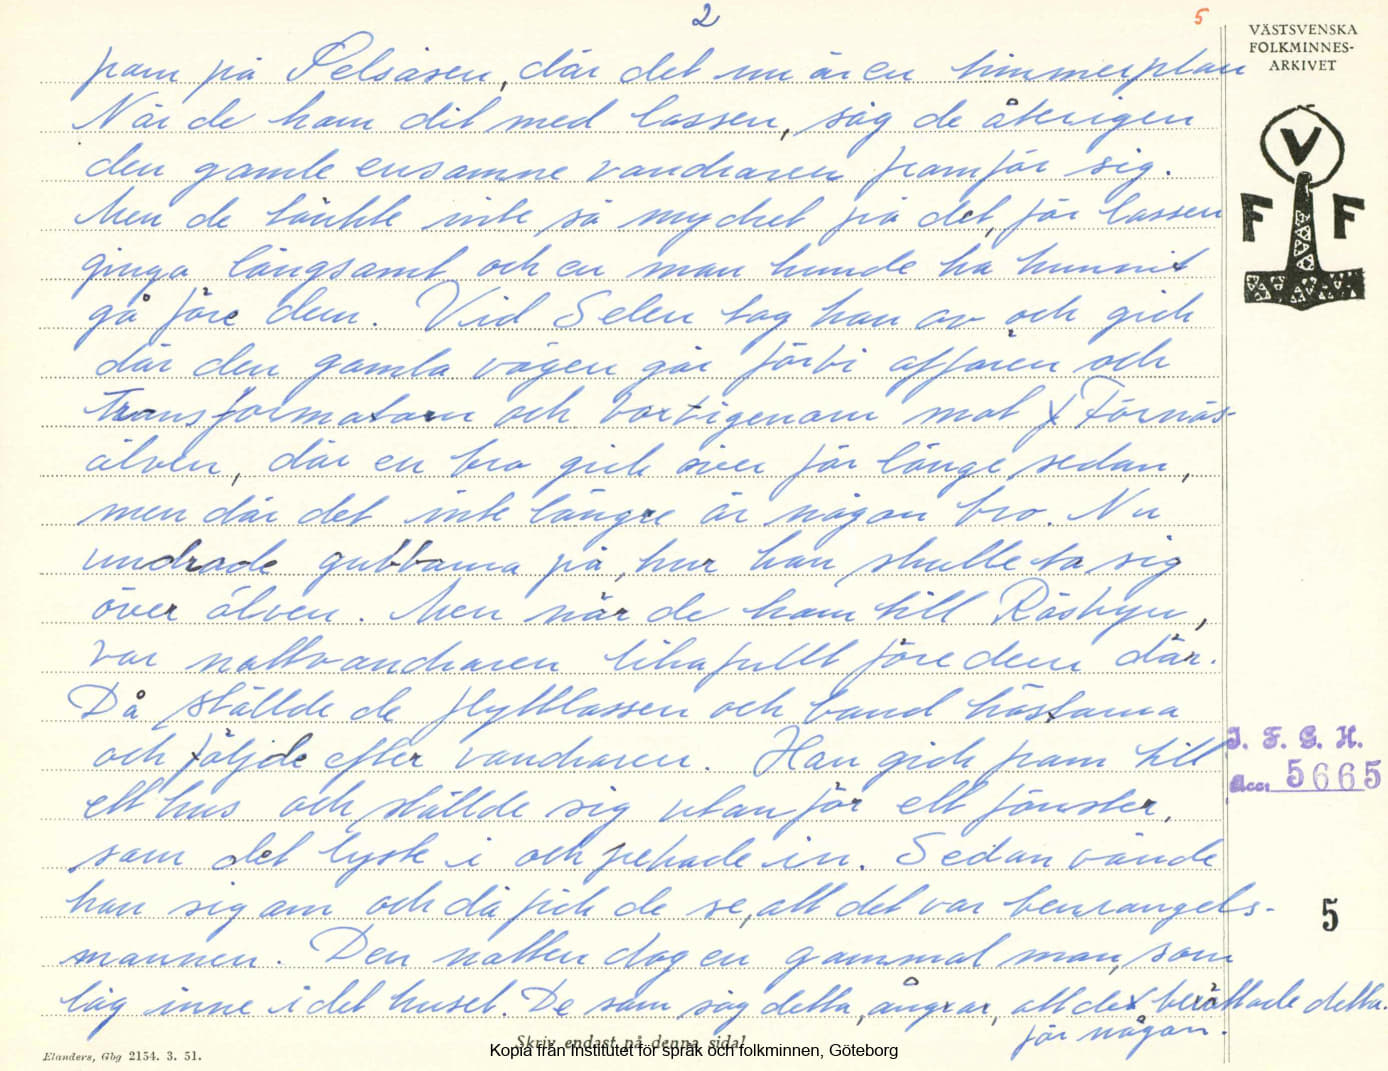 2
5
VÄSTSVENSKA
FOLKMINNES-
ARKIVET
fram på Pelsåsen, där det nu är en timmerplan
När de kom dit med lassen, såg de återigen
den gamle ensamne vandraren framför sig.
Men de tänkte inte så mycket på det, för lassen
gingo långsamt och en man kunde ha hunnit
gå före dem. Vid Selen tog han av och gick
där den gamla vägen går förbi affären och
Transformatorn och bortigenom mot Förnäs-
älven, där en bro gick över för länge sedan,
men där det inte längre är någon bro. Nu
undrade gubbarna på, hur han skulle ta sig
över älven. Men när de kom till Råsbyn,
var nattvandraren likafullt före dem där.
Då ställde de flyttlassen och band hästarna
och följde efter vandraren. Han gick fram till
ett hus och ställde sig utanför ett fönster,
som det lyste i och pekade in. Sedan vände
han sig om och då fick de se, att det var benrangels-
mannen. Den natten dog en gammal man, som
låg inne i det huset. De som såg detta, ångrar, att de berättade detta.
för någon.
V
F F
I. F. G. H.
Acc. 5665
5
Skriv endast på denna sida!
Elanders, Gbg 2154. 3. 51.
Kopia från Institutet för språk och folkminnen, Göteborg